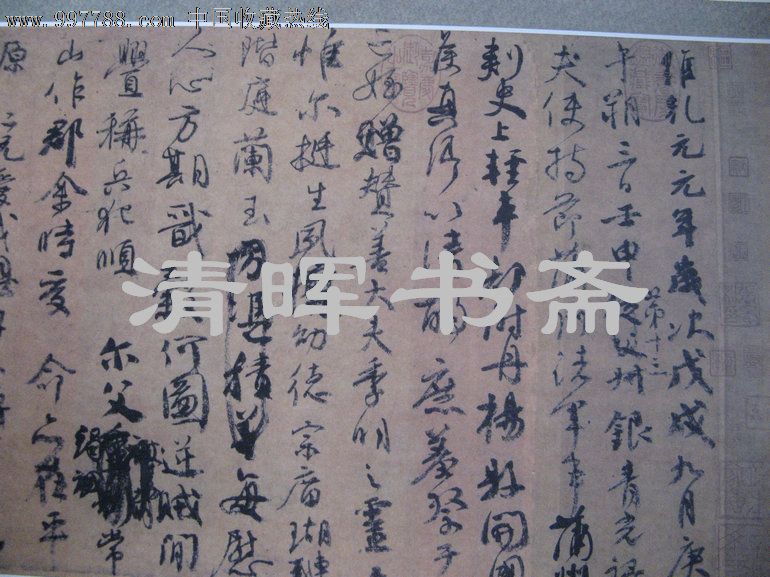 www.997788.com 中国收藏热线
維乾元元年歲次戊戌九月庚
午朔三日壬申從父叔銀青光祿
第十三
夫使持節蒲州諸軍事蒲州
刺史上輕車都尉丹楊縣開國
侯真卿以清酌庶羞祭于
亡姪贈贊善大夫季明之靈
惟爾挺生夙標幼德宗廟瑚璉
階庭蘭玉每慰
人心方期戩穀何圖逆賊閒
釁稱兵犯順爾父竭誠常
山作郡余時受命亦在平
原仁兄愛我
清晖书斋